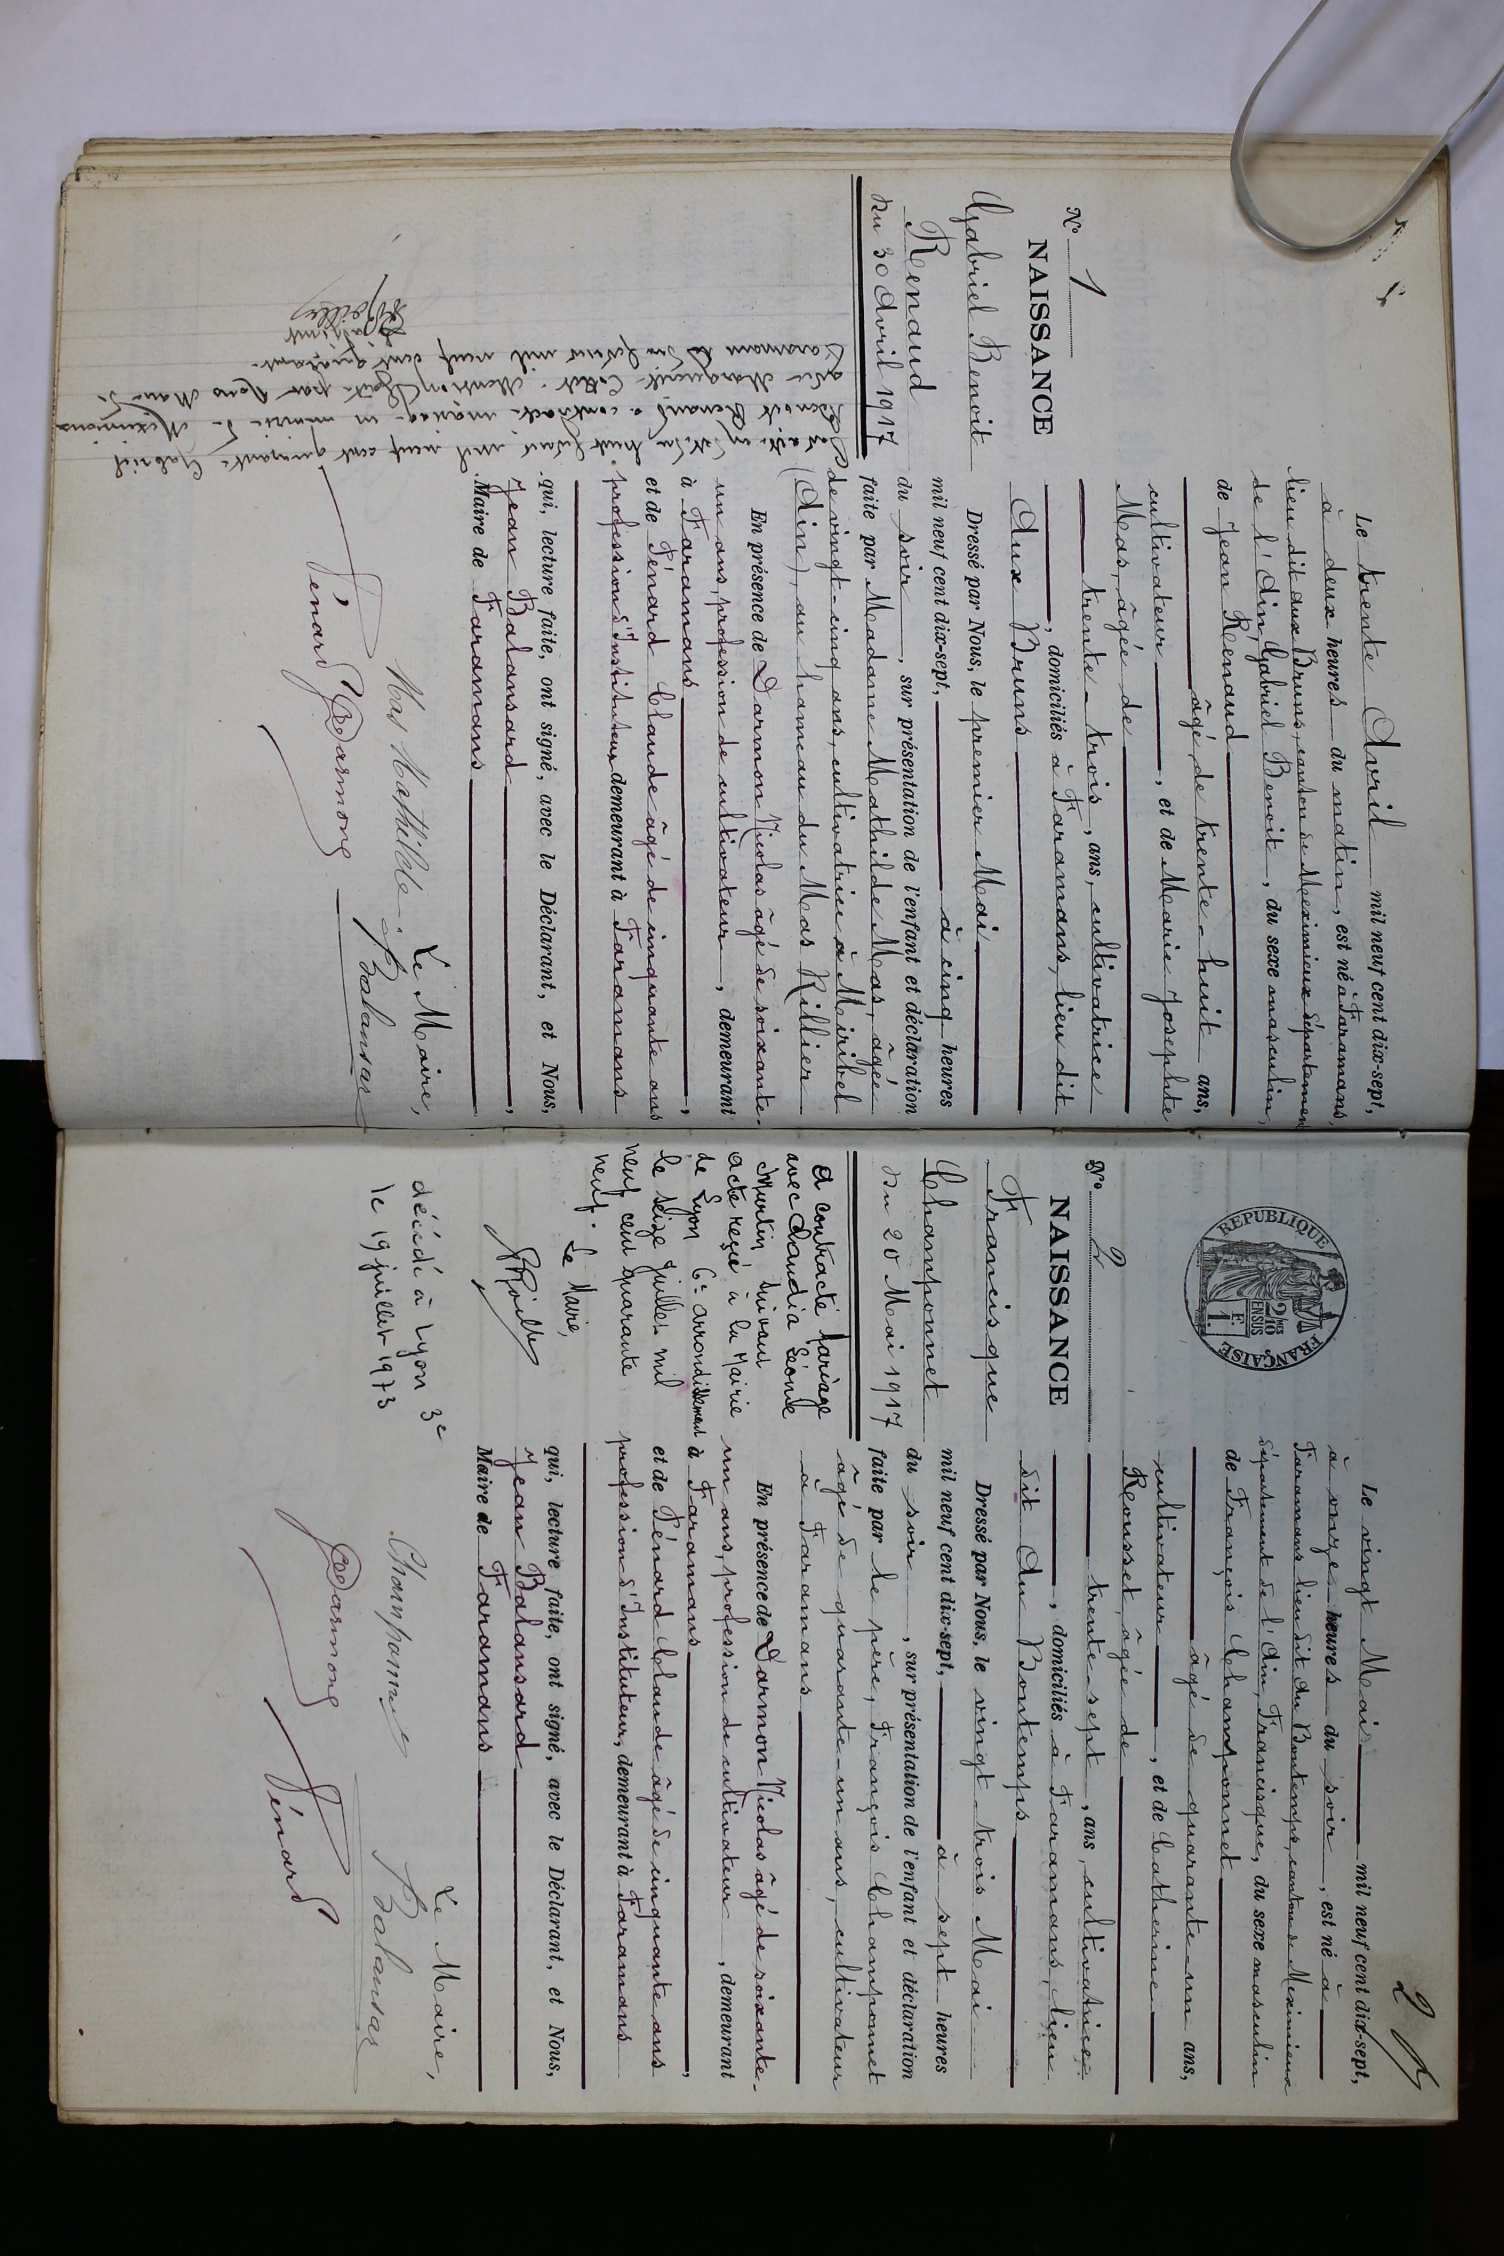 N° 1
NAISSANCE
Gabriel Benoit
Renaud
Du 30 Avril 1917
Le trente Avril mil neuf cent dix-sept,
à deux heures du matin, est né à Faramans,
lieu dit aux Bruns, canton de Meximieux département
de l'Ain, Gabriel Benoit, du sexe masculin,
de Jean Renaud
âgé de trente-huit ans,
cultivateur, et de Marie Josephte
Mas, âgée de
trente-trois, ans, cultivatrice
, domiciliés à Faramans, lieu dit
Aux Bruns
Dressé par Nous, le premier Mai
mil neuf cent dix-sept, à cinq heures
du soir, sur présentation de l'enfant et déclaration
faite par Madame Mathilde Mas, âgée
de vingt-cinq ans, cultivatrice à Miribel
(Ain), au hameau du Mas Rillier
En présence de Darmon Nicolas âgé de soixante-
un ans, profession de cultivateur, demeurant
à Faramans,
et de Pénard Claude âgé de cinquante ans
profession d'Instituteur, demeurant à Faramans
qui, lecture faite, ont signé, avec le Déclarant, et Nous,
Jean Balansard,
Maire de Faramans
Le Maire,
Mas Mathilde Balansard
Pénard Darmon
mil neuf cent quarante Gabriel
Benoit Renaud a contracté mariage en mairie de Meximieux
avec Marguerite Mention faite par Nous Maire de
Faramans le mil neuf cent quarante.
2
N° 2
REPUBLIQUE FRANÇAISE
2/10 EN SUS
1 F.
NAISSANCE
Francisque
Champonnet
Du 20 Mai 1917
a contracté mariage
avec Claudia Léonie
Murtin suivant
acte reçu à la Mairie
de Lyon 6e arrondissement
le seize juillet mil
neuf cent quarante
neuf. Le Maire,
décédé à Lyon 3e
le 19 juillet 1973
Le vingt Mai mil neuf cent dix-sept,
à onze heures du soir, est né à
Faramans lieu dit du Bontemps, canton de Meximieux
département de l'Ain, Francisque, du sexe masculin
de François Champonnet
âgé de quarante-un ans,
cultivateur, et de Catherine
Rousset, âgée de
trente-sept, ans, cultivatrice
, domiciliés à Faramans, lieu
dit Au Bontemps
Dressé par Nous, le vingt-trois Mai
mil neuf cent dix-sept, à sept heures
du soir, sur présentation de l'enfant et déclaration
faite par le père, François Champonnet
âgé de quarante-un ans, cultivateur
à Faramans
En présence de Darmon Nicolas âgé de soixante-
un ans, profession de cultivateur, demeurant
à Faramans,
et de Pénard Claude âgé de cinquante ans
profession d'Instituteur, demeurant à Faramans
qui, lecture faite, ont signé, avec le Déclarant, et Nous,
Jean Balansard
Maire de Faramans
Le Maire,
Champonnet Balansard
Darmon Pénard